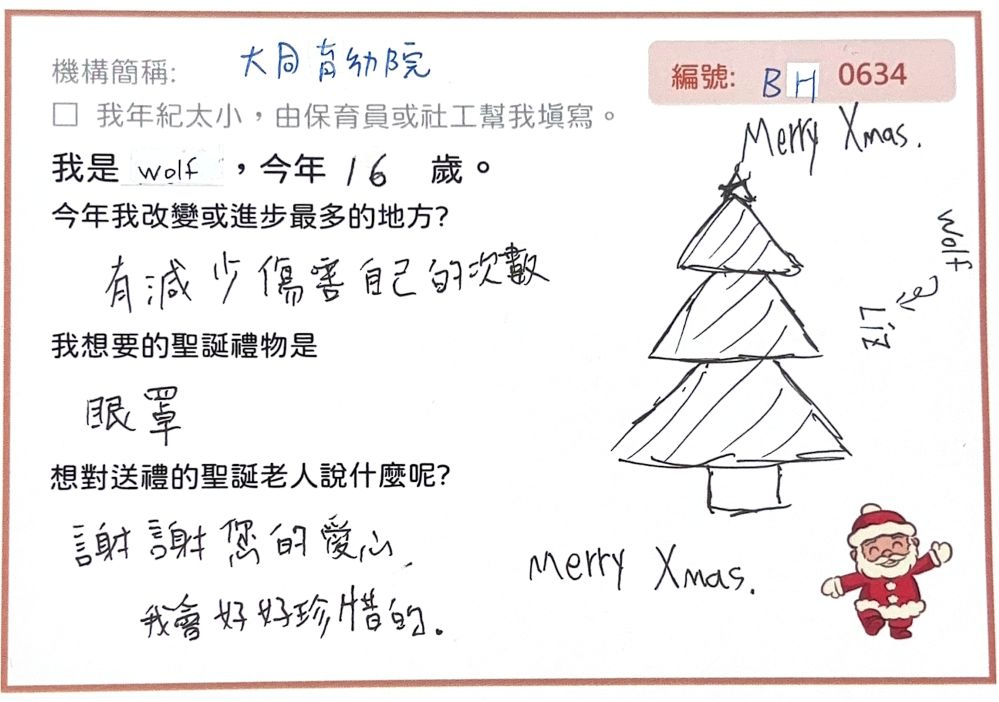 機構簡稱: 大同育幼院
編號: BH 0634
□ 我年紀太小，由保育員或社工幫我填寫。
Merry Xmas.
我是 wolf，今年 16 歲。
今年我改變或進步最多的地方?
有減少傷害自己的次數
wolf
Liz
我想要的聖誕禮物是
眼罩
想對送禮的聖誕老人說什麼呢?
謝謝您的愛心,
我會好好珍惜的.
Merry Xmas.